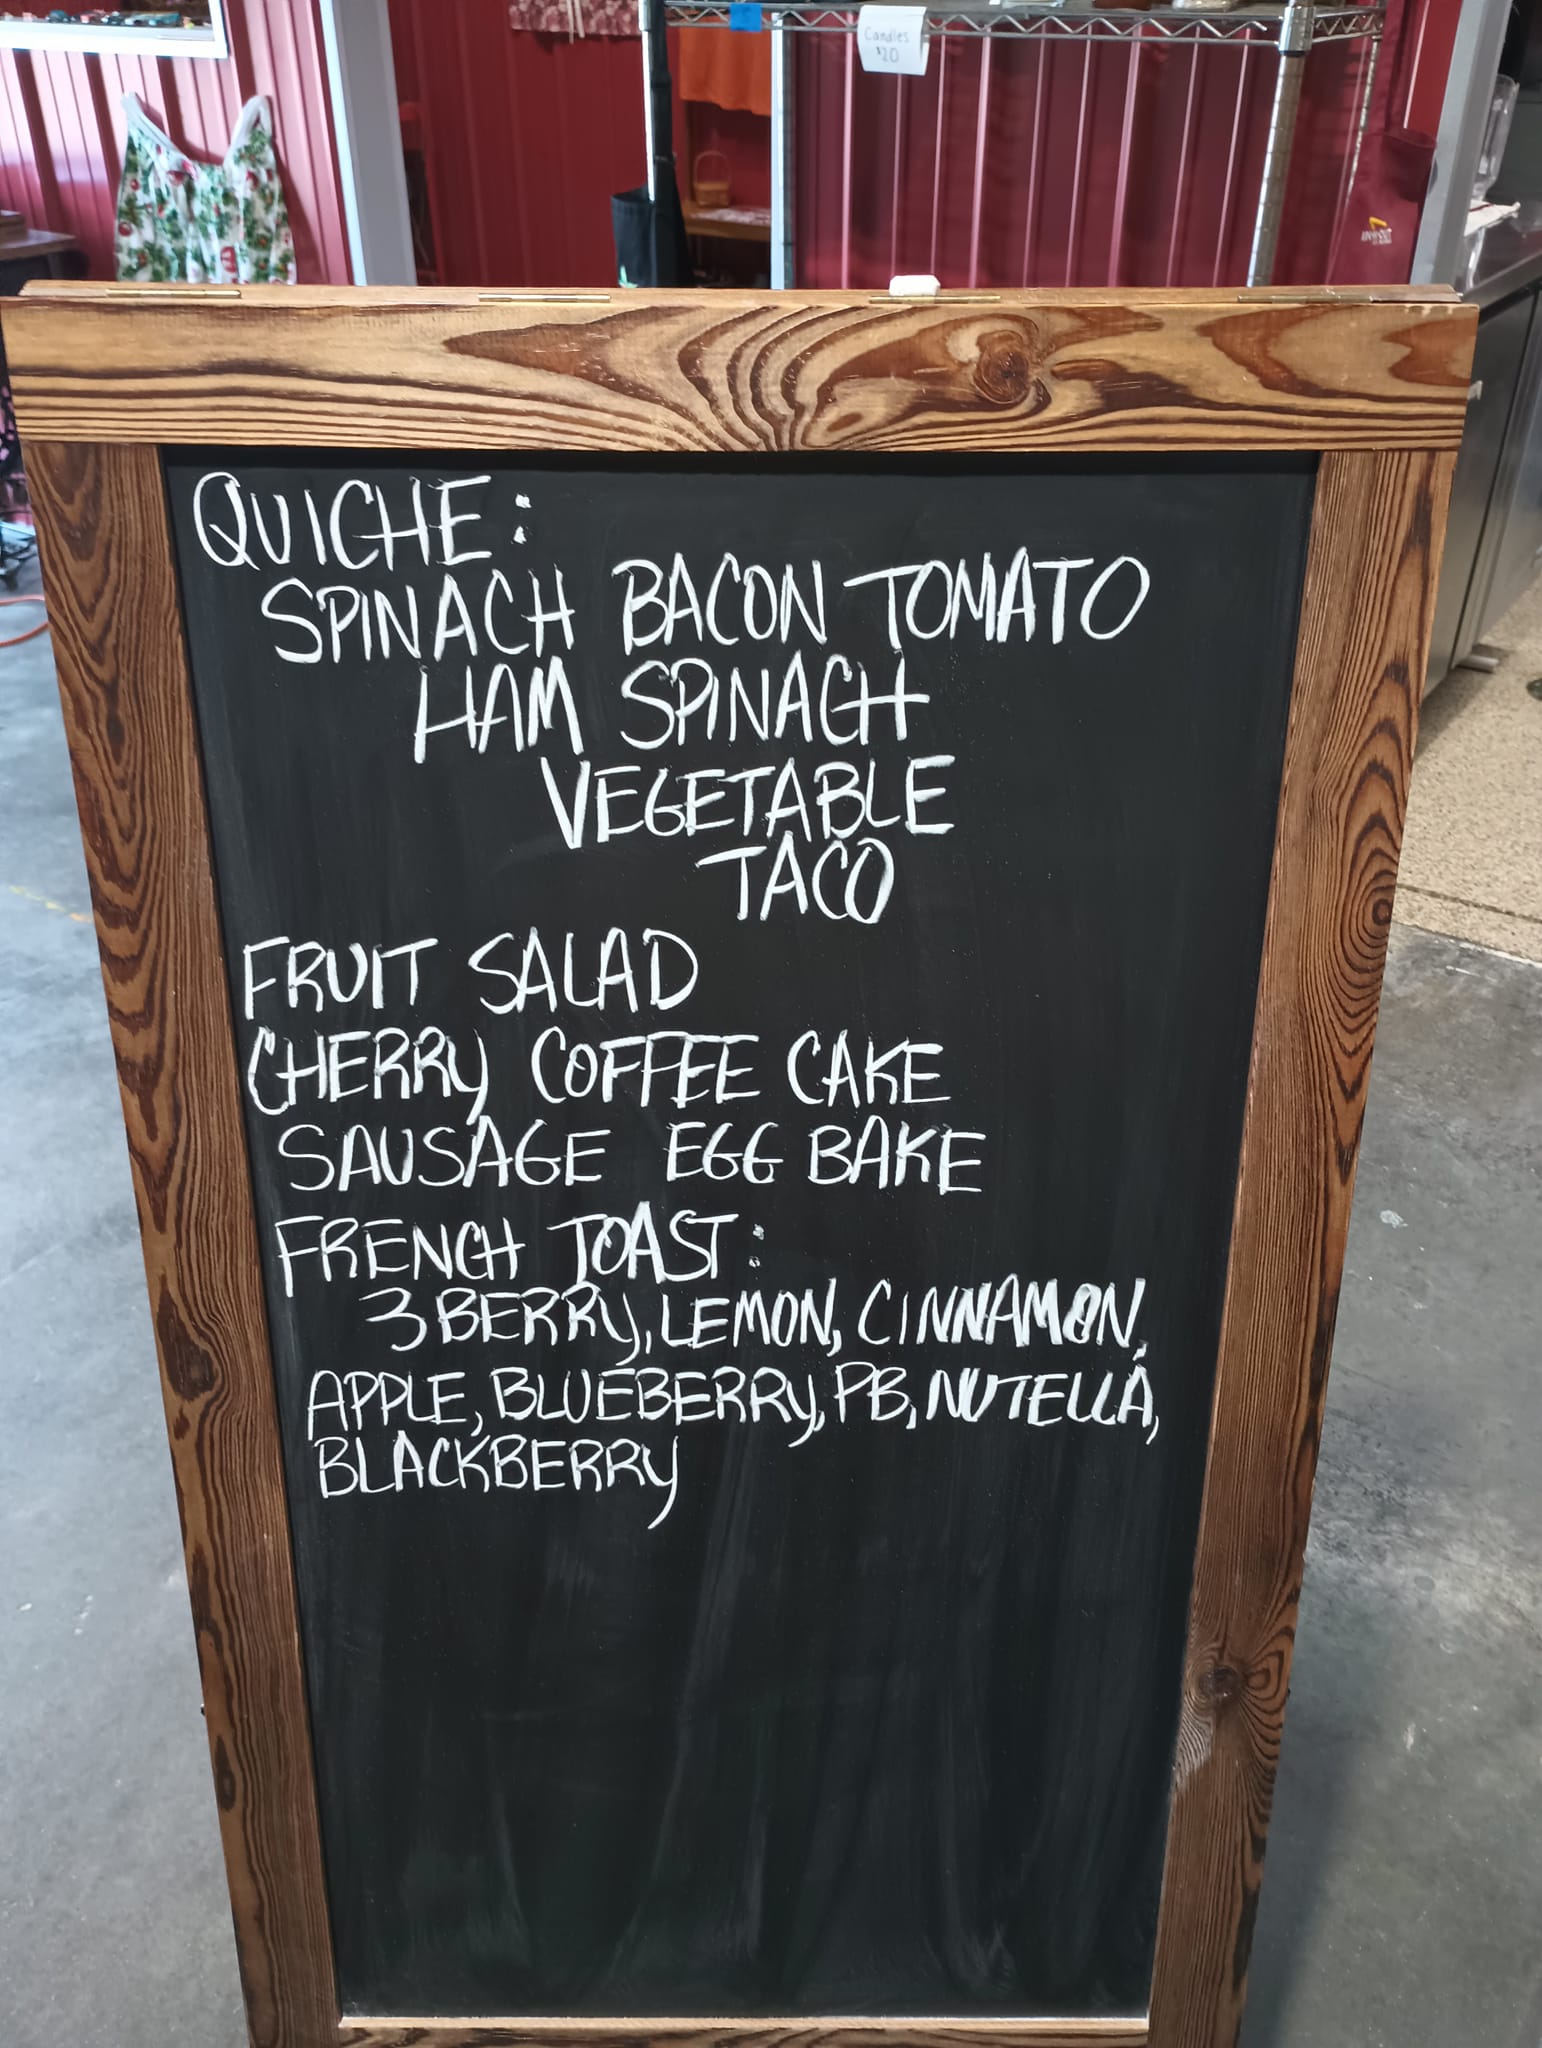 Candles
$20
QUICHE:
SPINACH BACON TOMATO
HAM SPINACH
VEGETABLE
TACO
FRUIT SALAD
CHERRY COFFEE CAKE
SAUSAGE EGG BAKE
FRENCH TOAST:
3 BERRY, LEMON, CINNAMON,
APPLE, BLUEBERRY, PB, NUTELLA,
BLACKBERRY